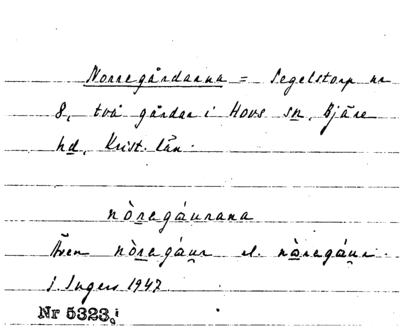 Norregårdarna = Segelstorp nr
8, två gårdar i Hovs sn, Bjäre
hd, Krist. län.
nòregáurana
Även nòregáur el. nàregáur.
J. Ingers 1947.
Nr 5323,